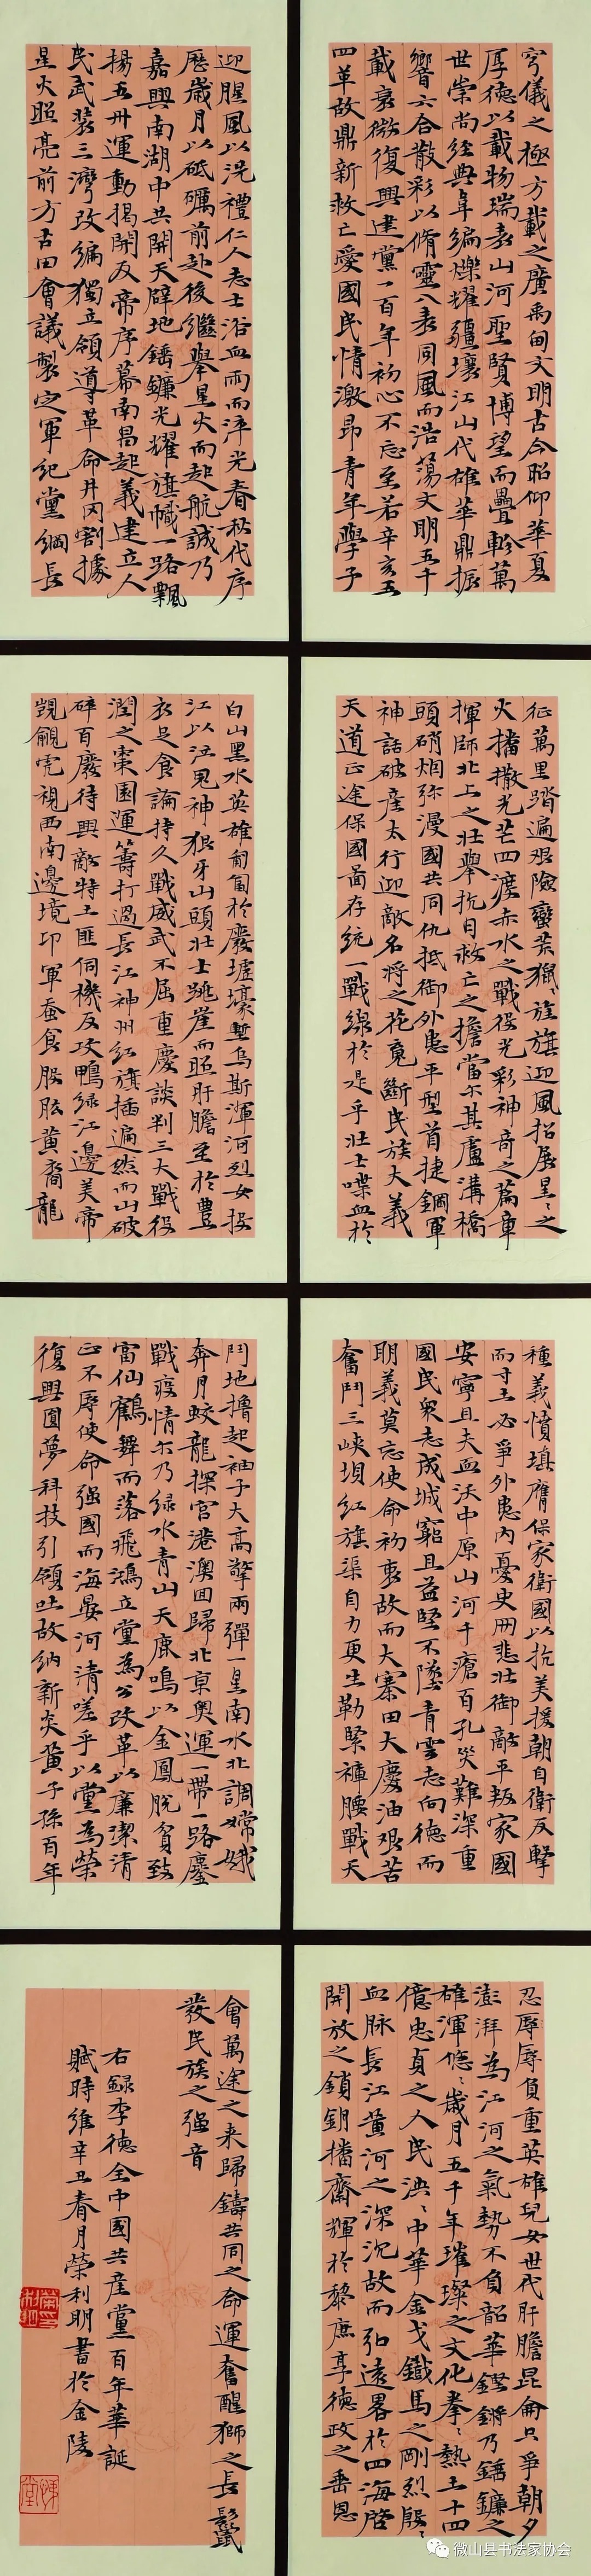 穹儀之極方載之廣禹甸文明古今昭仰華夏
厚德以載物瑞表山河聖賢博望而疊軫萬
世崇尚經典韋編爍耀疆壤江山代雄華鼎振
響六合散彩以脩靈八表同風而浩蕩文明五千
載衰微復興建黨一百年初心不忘至若辛亥五
四革故鼎新救亡愛國民情激昂青年學子
迎腥風以洗禮仁人志士浴血雨而淬光春秋代序
歷歲月以砥礪前赴後繼舉星火而起航誠乃
嘉興南湖中共開天辟地錘鐮光耀旗幟一路飄
揚五卅運動揭開反帝序幕南昌起義建立人
民武裝三灣改編獨立領導革命井冈割據
星火照亮前方古田會議製定軍紀黨綱長
征萬里踏遍艰險蠻荒獵々旌旗迎風招展星々之
火擋撒光芒四渡赤水之戰役光彩神奇之篇章
揮師北上之壯舉抗日救亡之擔當尔其盧溝橋
頭硝烟弥漫國共同仇抵御外患平型首捷鋼軍
神話破產太行迎敵名將之花竟斷民族大義
天道正途保國啚存統一戰線於是乎壯士喋血於
白山黑水英雄匍匐於廢墟壕塹烏斯渾河烈女投
江以泣鬼神狼牙山頭壯士跳崖而昭肝膽至於豊
衣足食論持久戰威武不屈重慶談判三大戰役
潤之棗園運籌打過長江神州紅旗插遍然而山破
碎百廢待興敵特土匪伺機反攻鴨绿江邊美帝
覬覦虎視西南邊境印軍蚕食股肱黄裔龍
種義憤填膺保家衛國以抗美援朝自衛反擊
而寸土必爭外患内憂史册悲壯御敵平叛家國
安寧且夫血沃中原山河千瘡百孔災難深重
國民衆志成城窮且益堅不墜青雲志向德而
明義莫忘使命初衷故而大寨田大慶油艰苦
奮鬥三峽坝紅旗渠自力更生勒緊褲腰戰天
鬥地擼起袖子大高擎兩彈一星南水北調嫦娥
奔月蛟龍探宫港澳回歸北京奥運一帶一路鏖
戰疫情尔乃绿水青山天鹿鳴以金鳳脱貧致
富仙鶴舞而落飛鴻立黨為公改革以廉潔清
正不辱使命强國而海晏河清嗟乎以黨為榮
復興圓夢科技引領吐故纳新炎黄子孫百年
忍辱負重英雄兒女世代肝膽昆侖只爭朝夕
澎湃為江河之氣勢不負韶華鏗鏘乃錘鐮之
雄渾悠々歲月五千年璀璨之文化拳々熱土十四
億忠貞之人民泱々中華金戈鐵馬之剛烈殷々
血脉長江黄河之深沉故而弘遠畧於四海啓
開放之鎖鑰擋齋輝於黎庶享德政之垂恩
會萬途之來歸鑄共同之命運奮醒獅之長鬣
發民族之强音
右録李德全中國共産黨百年華誕
賦時維辛丑春月榮利明書於金陵
微山县书法家协会